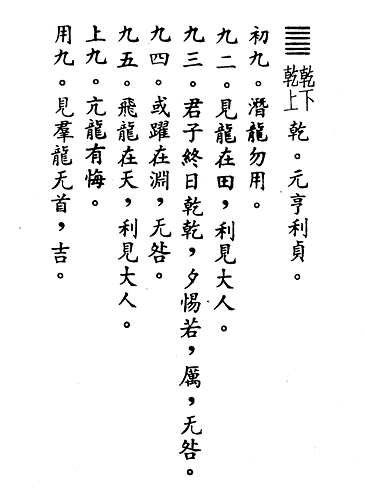 ䷀乾下乾上 乾。元亨利貞。
初九。潛龍勿用。
九二。見龍在田,利見大人。
九三。君子終日乾乾,夕惕若,厲,无咎。
九四。或躍在淵,无咎。
九五。飛龍在天,利見大人。
上九。亢龍有悔。
用九。見羣龍无首,吉。